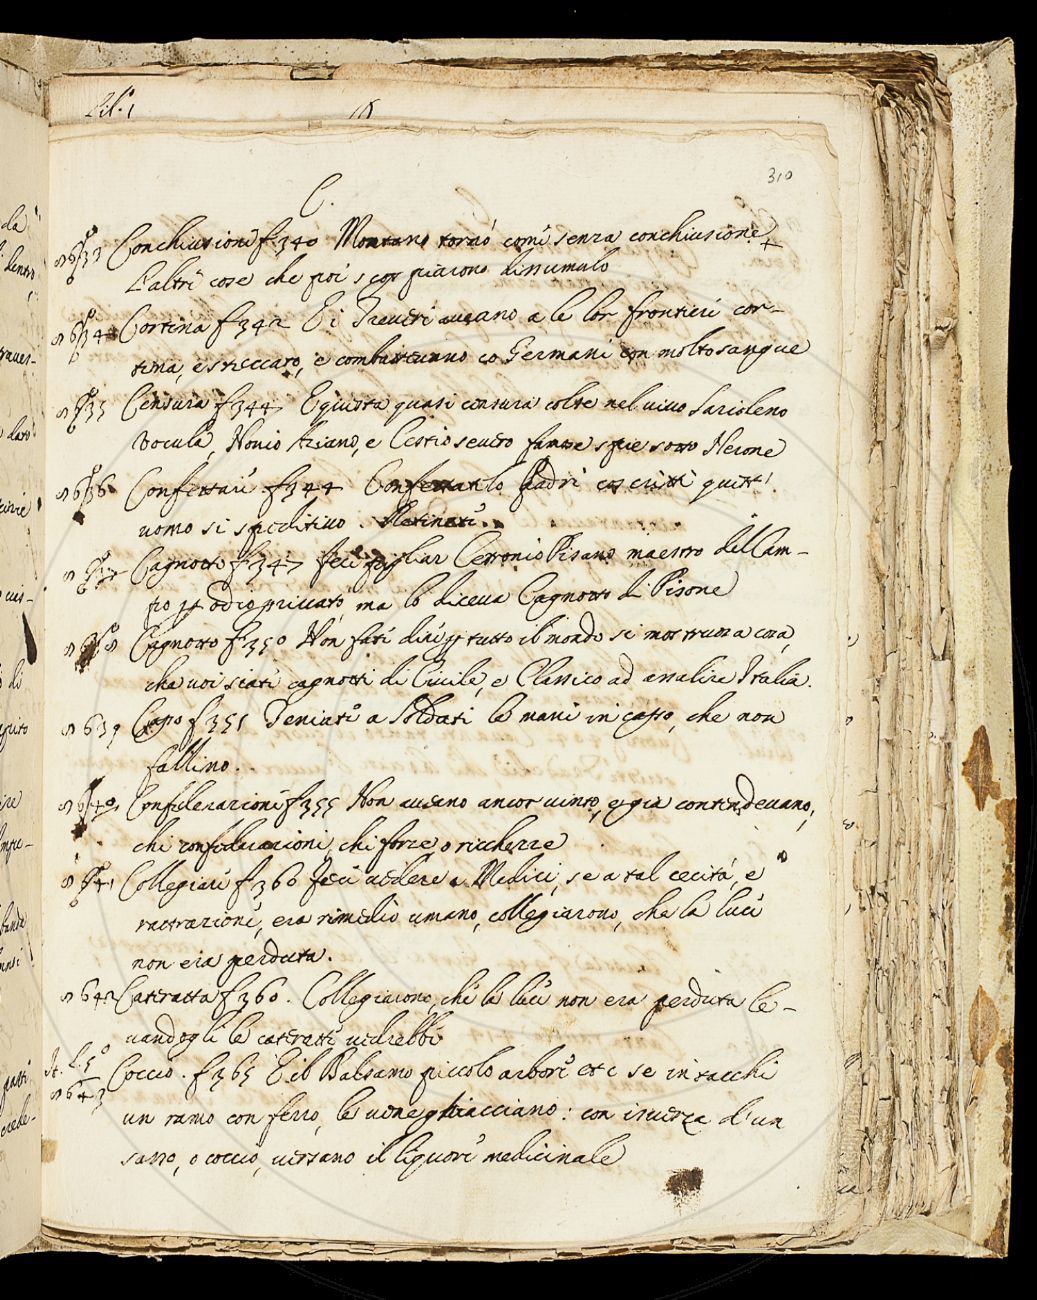 Lib. 1
310
C.
Conchiusione f. 340 Montano tornò come senza conchiusione
L'altre cose che poi scoppiarono dissimulo
Cortina f. 342 E i Treveri aveano a le lor frontiere cor-
tina, e steccato, e combatterono co Germani con molto sangue
Censura f. 344 E questa quasi censura colse nel vivo Sarioleno
Vocula, Nonio Aziano, e Cestio severo famose spie sotto Nerone
Confettare f. 344 Padri coscritti quest'
uomo si speditivo.
Cagnotto f. 347 Feci pigliar Cetronio Pisano maestro del Cam-
po p odio privato, ma lo diceva Cagnotto di Pisone
Cagnotto f. 350 Non fate dire p tutto il mondo si mostruosa cosa,
che voi siate cagnotti di Civile, e Classico ad assalire Italia.
639 Capo f. 351 Teniate a Soldati le mani in capo, che non
fallino.
640 Confederazione f. 355 Non aveano ancor vinto, e già contendevano,
chi confederazioni, chi forze o ricchezze
Collegiare f. 360 Feci vedere a Medici, se a tal cecità, e
rattrazione, era rimedio umano, collegiarono, che la luce
non era perduta.
642 Cateratta f. 360. Collegiarono, che la luce non era perduta le-
vandogli le cateratte vedrebbe
It. L. 5
643 Coccio. f. 365 E il Balsamo piccolo arbore etc se intacchi
un ramo con ferro, le vene ghiacciano: con inverza d'un
sasso, o coccio, versano il liquore medicinale